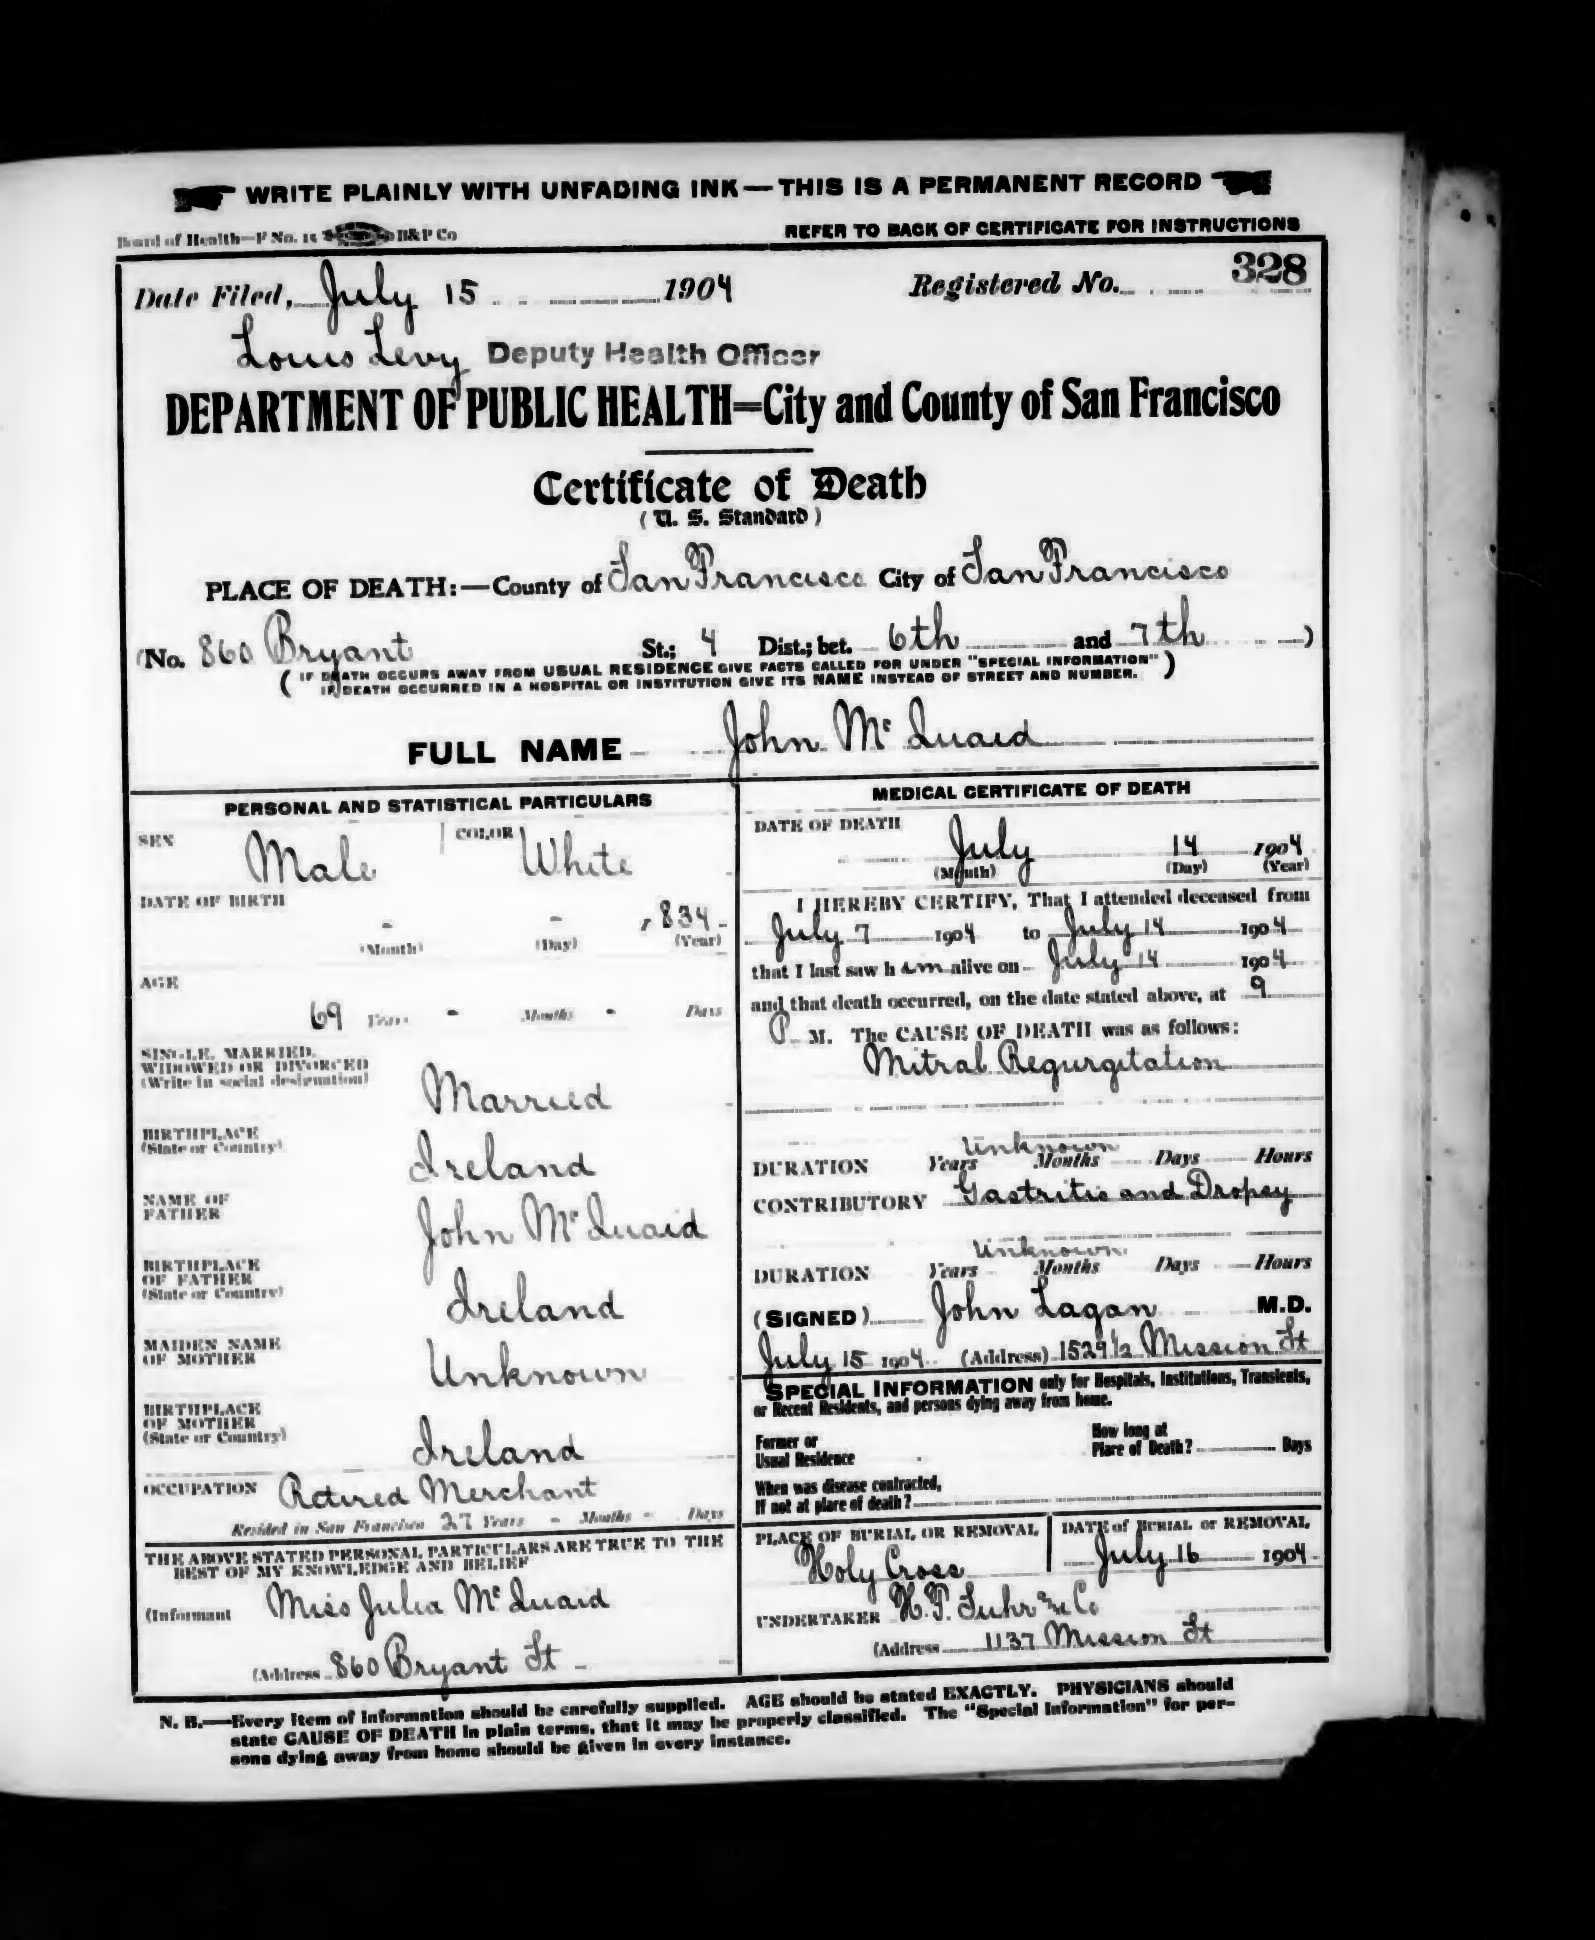 WRITE PLAINLY WITH UNFADING INK—THIS IS A PERMANENT RECORD
Board of Health—F No. 15 B&P Co REFER TO BACK OF CERTIFICATE FOR INSTRUCTIONS
Date Filed, July 15 1904 Registered No. 328
Louis Levy Deputy Health Officer
DEPARTMENT OF PUBLIC HEALTH=City and County of San Francisco
Certificate of Death
(U. S. Standard)
PLACE OF DEATH:—County of San Francisco City of San Francisco
(No. 860 Bryant St.; 4 Dist.; bet. 6th and 7th)
(IF DEATH OCCURS AWAY FROM USUAL RESIDENCE GIVE FACTS CALLED FOR UNDER "SPECIAL INFORMATION"
IF DEATH OCCURRED IN A HOSPITAL OR INSTITUTION GIVE ITS NAME INSTEAD OF STREET AND NUMBER.)
FULL NAME John McQuaid
PERSONAL AND STATISTICAL PARTICULARS
SEX Male COLOR White
DATE OF BIRTH
- - 1834
(Month) (Day) (Year)
AGE
69 Years - Months - Days
SINGLE, MARRIED,
WIDOWED OR DIVORCED
(Write in social designation) Married
BIRTHPLACE
(State or Country) Ireland
NAME OF
FATHER John McQuaid
BIRTHPLACE
OF FATHER
(State or Country) Ireland
MAIDEN NAME
OF MOTHER Unknown
BIRTHPLACE
OF MOTHER
(State or Country) Ireland
OCCUPATION Retired Merchant
Resided in San Francisco 27 Years - Months - Days
THE ABOVE STATED PERSONAL PARTICULARS ARE TRUE TO THE
BEST OF MY KNOWLEDGE AND BELIEF
(Informant Miss Julia McQuaid
(Address 860 Bryant St
MEDICAL CERTIFICATE OF DEATH
DATE OF DEATH
July 14 1904
(Month) (Day) (Year)
I HEREBY CERTIFY, That I attended deceased from
July 7 1904 to July 14 1904
that I last saw him alive on July 14 1904
and that death occurred, on the date stated above, at 9
P M. The CAUSE OF DEATH was as follows:
Mitral Regurgitation
Unknown
DURATION Years Months Days Hours
CONTRIBUTORY Gastritis and Dropsy
Unknown
DURATION Years Months Days Hours
(SIGNED) John Lagan M.D.
July 15 1904 (Address) 1529 1/2 Mission St
SPECIAL INFORMATION only for Hospitals, Institutions, Transients,
or Recent Residents, and persons dying away from home.
Former or
Usual Residence
How long at
Place of Death? Days
When was disease contracted,
If not at place of death?
PLACE OF BURIAL OR REMOVAL
Holy Cross
DATE of BURIAL or REMOVAL
July 16 1904
UNDERTAKER
(Address 1137 Mission St
N. B.—Every item of information should be carefully supplied. AGE should be stated EXACTLY. PHYSICIANS should
state CAUSE OF DEATH in plain terms, that it may be properly classified. The "Special Information" for per-
sons dying away from home should be given in every instance.